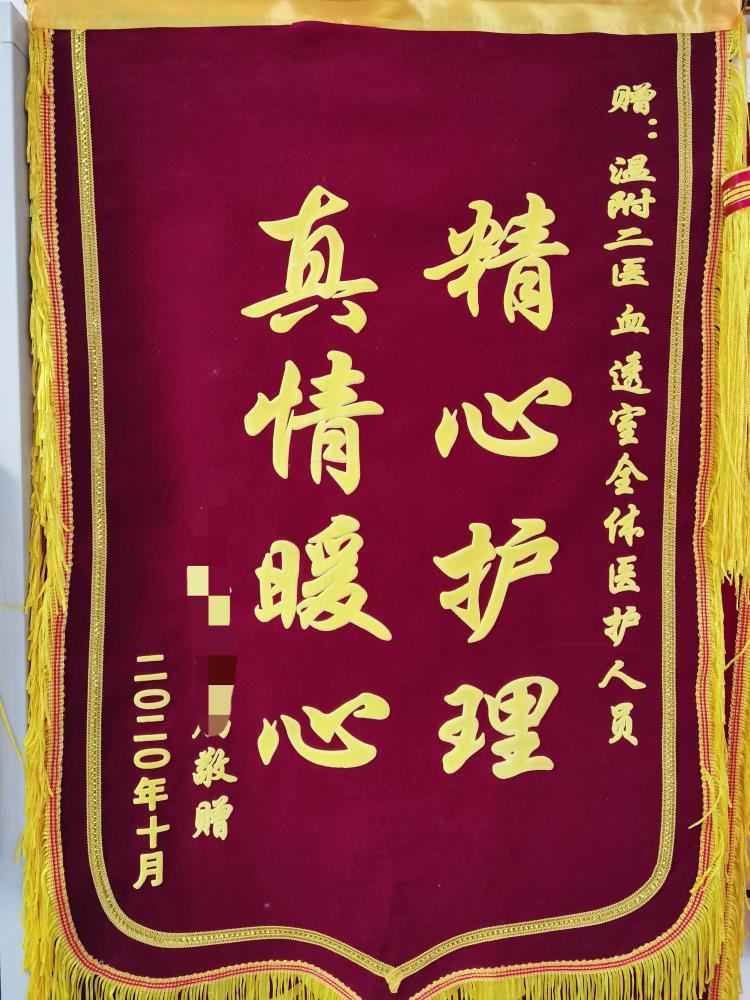 赠：温附二医血透室全体医护人员
精心护理
真情暖心
敬赠
二〇二〇年十月